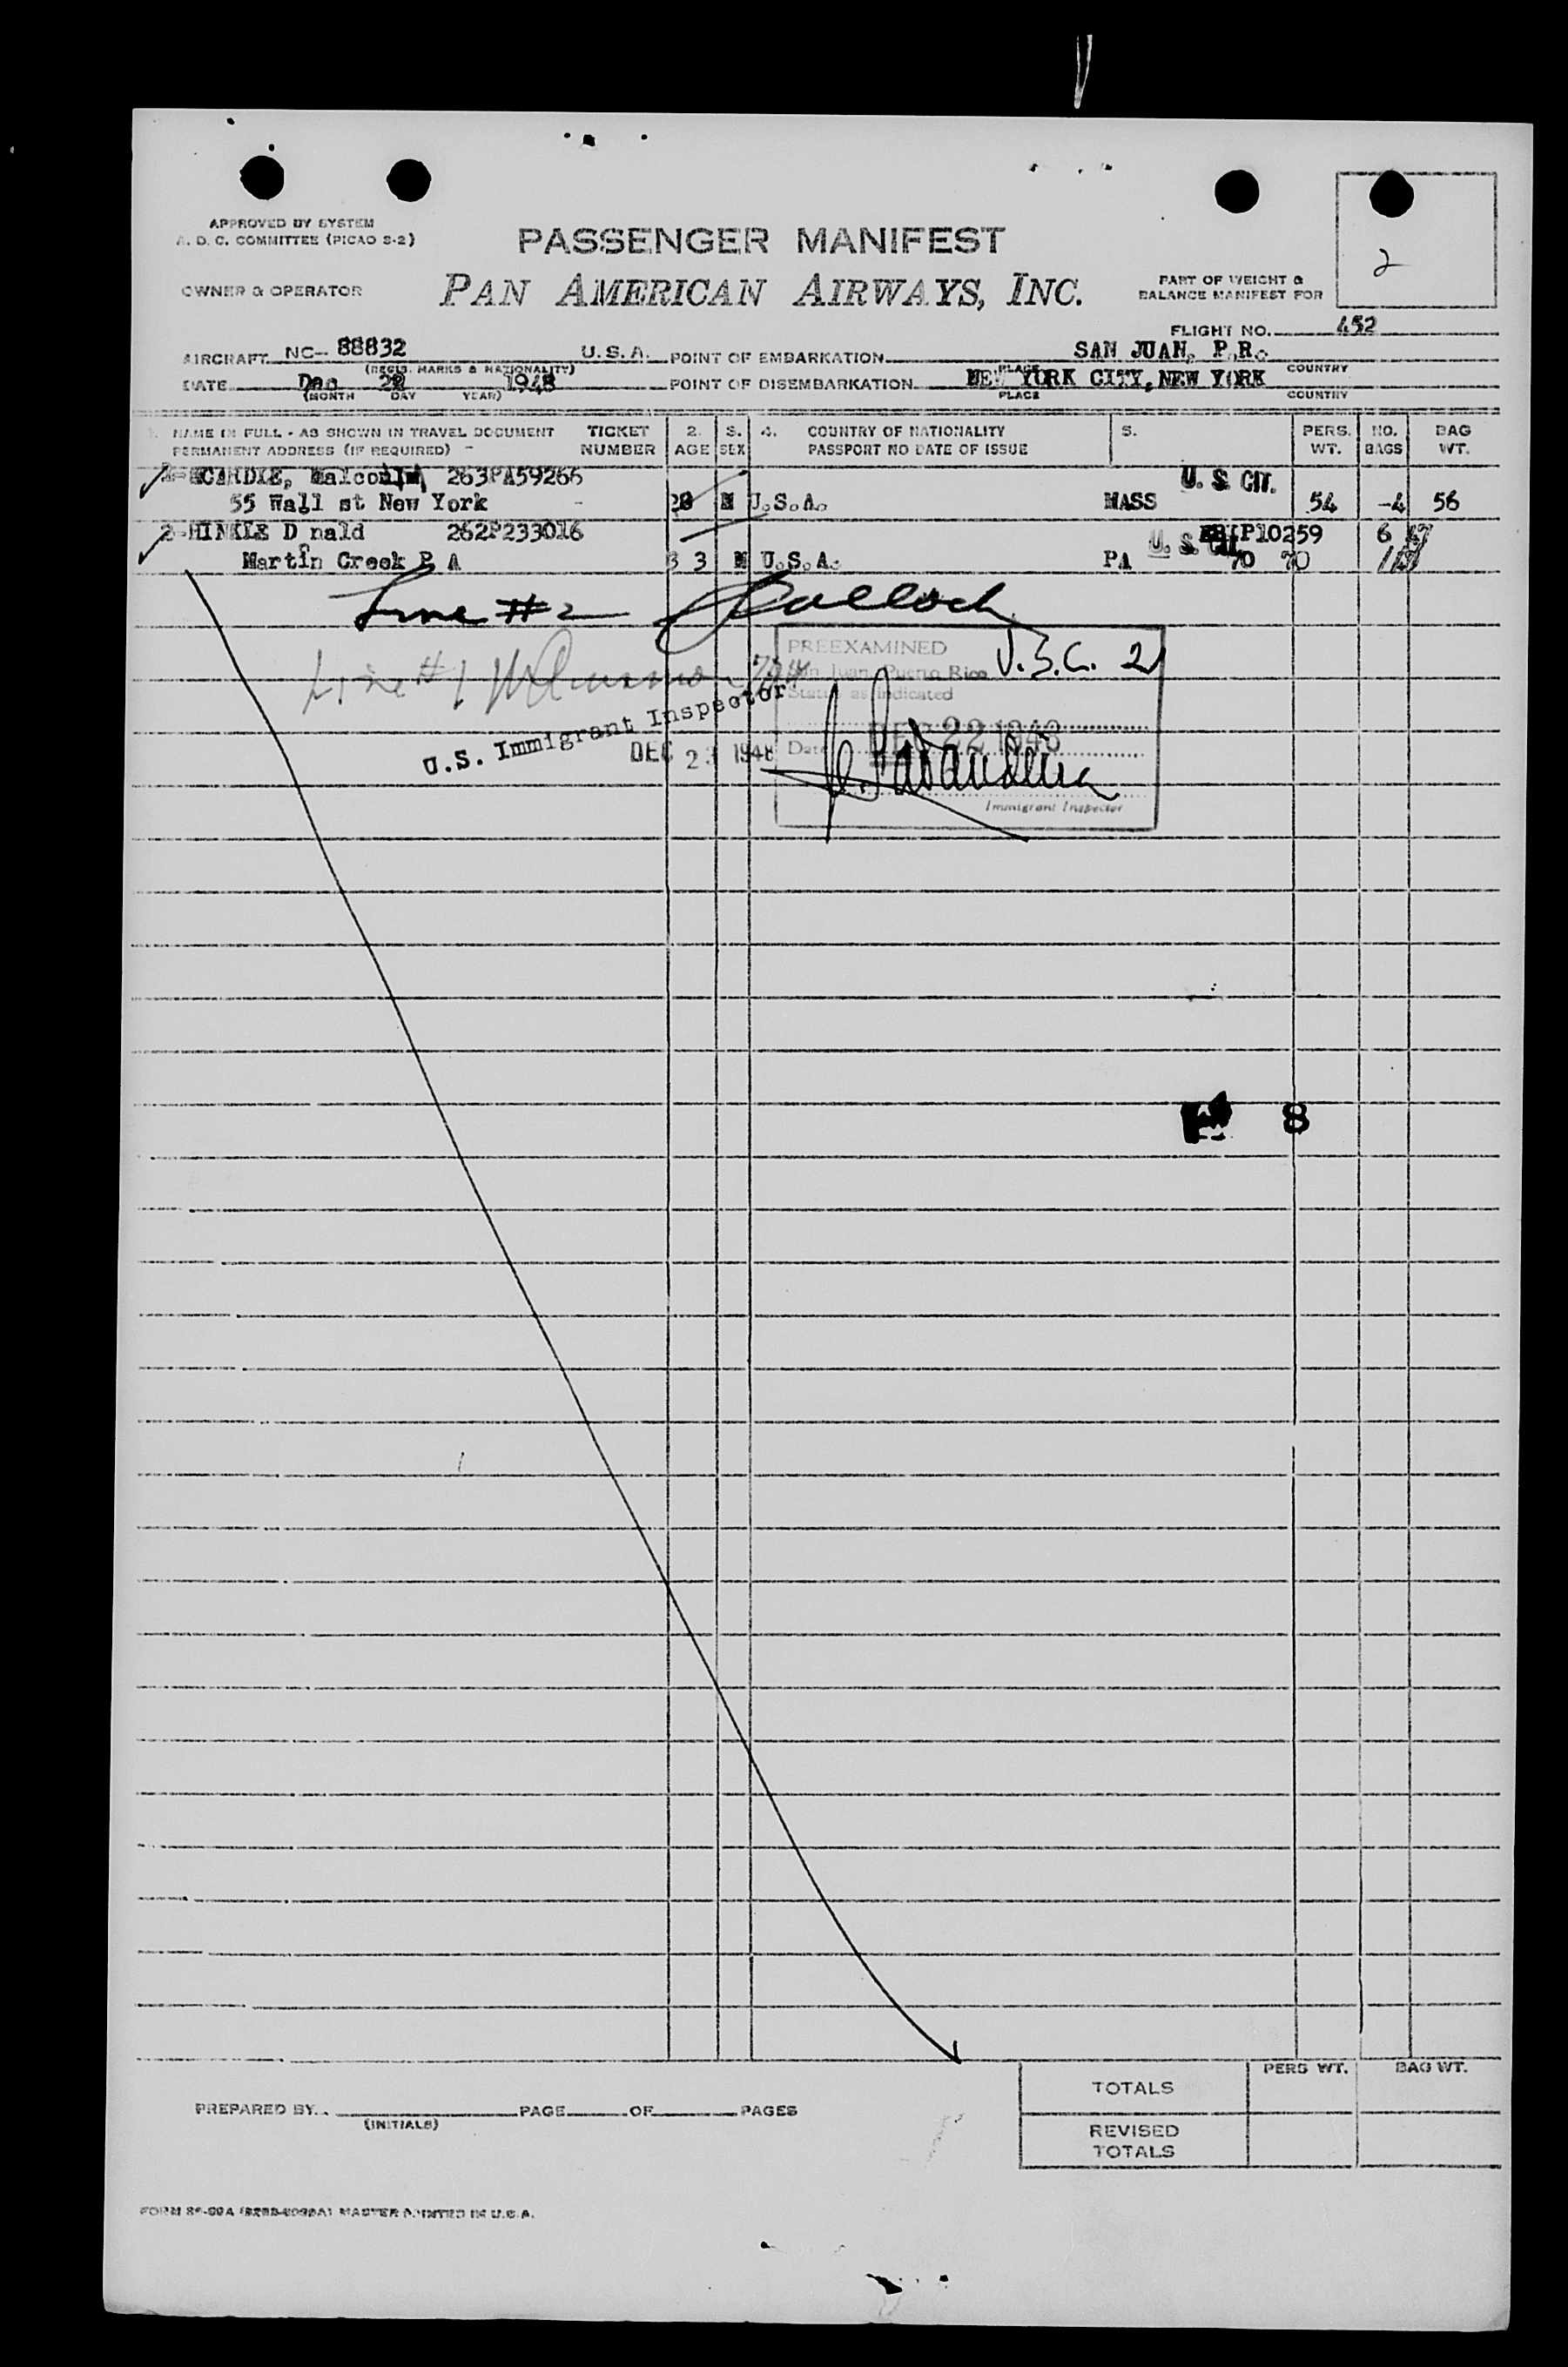 APPROVED BY SYSTEM
A. D. C. COMMITTEE (PICAO S-2)
PASSENGER MANIFEST
2
OWNER & OPERATOR
PAN AMERICAN AIRWAYS, INC.
PART OF WEIGHT &
BALANCE MANIFEST FOR
FLIGHT NO. 452
AIRCRAFT NC- 88832 U.S.A. POINT OF EMBARKATION SAN JUAN, P.R.
(REGIS. MARKS & NATIONALITY) PLACE COUNTRY
DATE Dec 22 1948 POINT OF DISEMBARKATION NEW YORK CITY, NEW YORK
(MONTH DAY YEAR) PLACE COUNTRY
1. NAME IN FULL - AS SHOWN IN TRAVEL DOCUMENT TICKET 2. 3. 4. COUNTRY OF NATIONALITY 5. PERS. NO. BAG
PERMANENT ADDRESS (IF REQUIRED) NUMBER AGE SEX PASSPORT NO DATE OF ISSUE WT. BAGS WT.
263PA59266 U. S. CIT.
55 Wall st New York 28 M U.S.A. MASS 54 -4 56
2-HINKLE D nald 262P233016 P10259 6
Martin Creek P A 3 3 M U.S.A. PA U. S. CIT. 70 70
Line #2
PREEXAMINED U.S.C. 2
San Juan, Puerto Rico
Line #1
Status as indicated
U.S. Immigrant Inspector
DEC 23 1948 Date DEC 22 1948
Immigrant Inspector
8
TOTALS PERS WT. BAG WT.
PREPARED BY. PAGE OF PAGES
(INITIALS)
REVISED
TOTALS
MASTER PRINTED IN U.S.A.